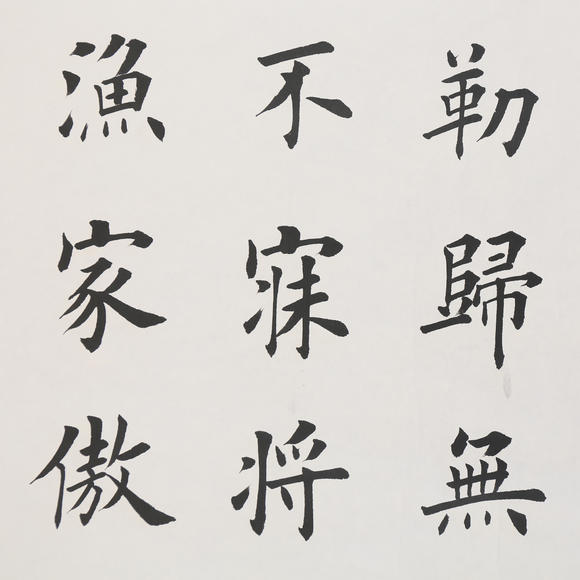 勒歸無
不寐将
漁家傲